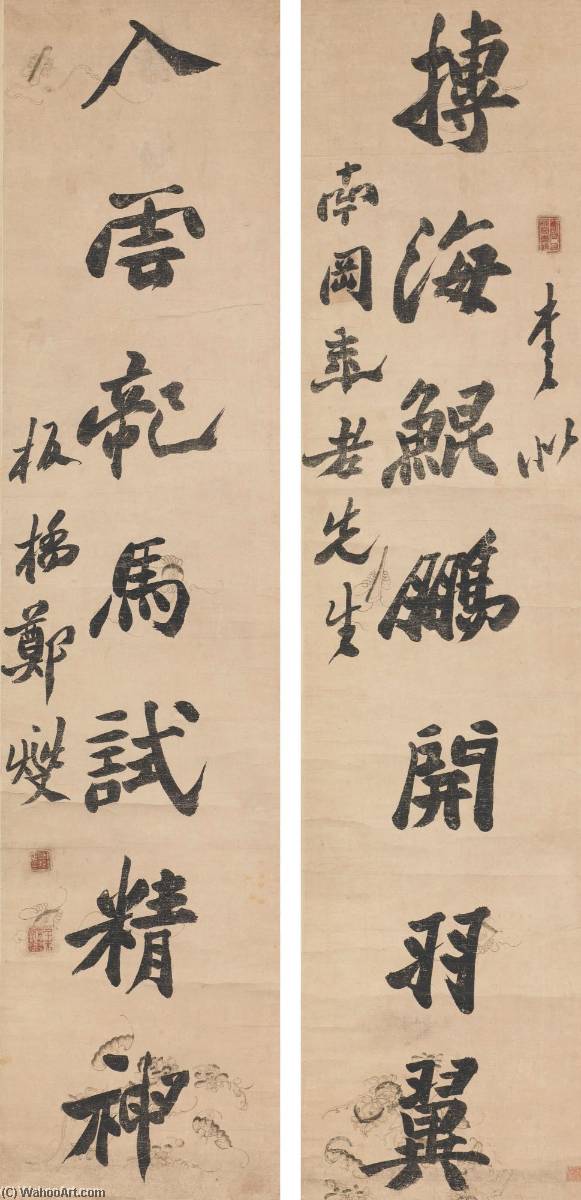 搏海鯤鵬開羽翼
南岡年老先生
入雲龍馬試精神
板橋鄭燮
(C) WahooArt.com